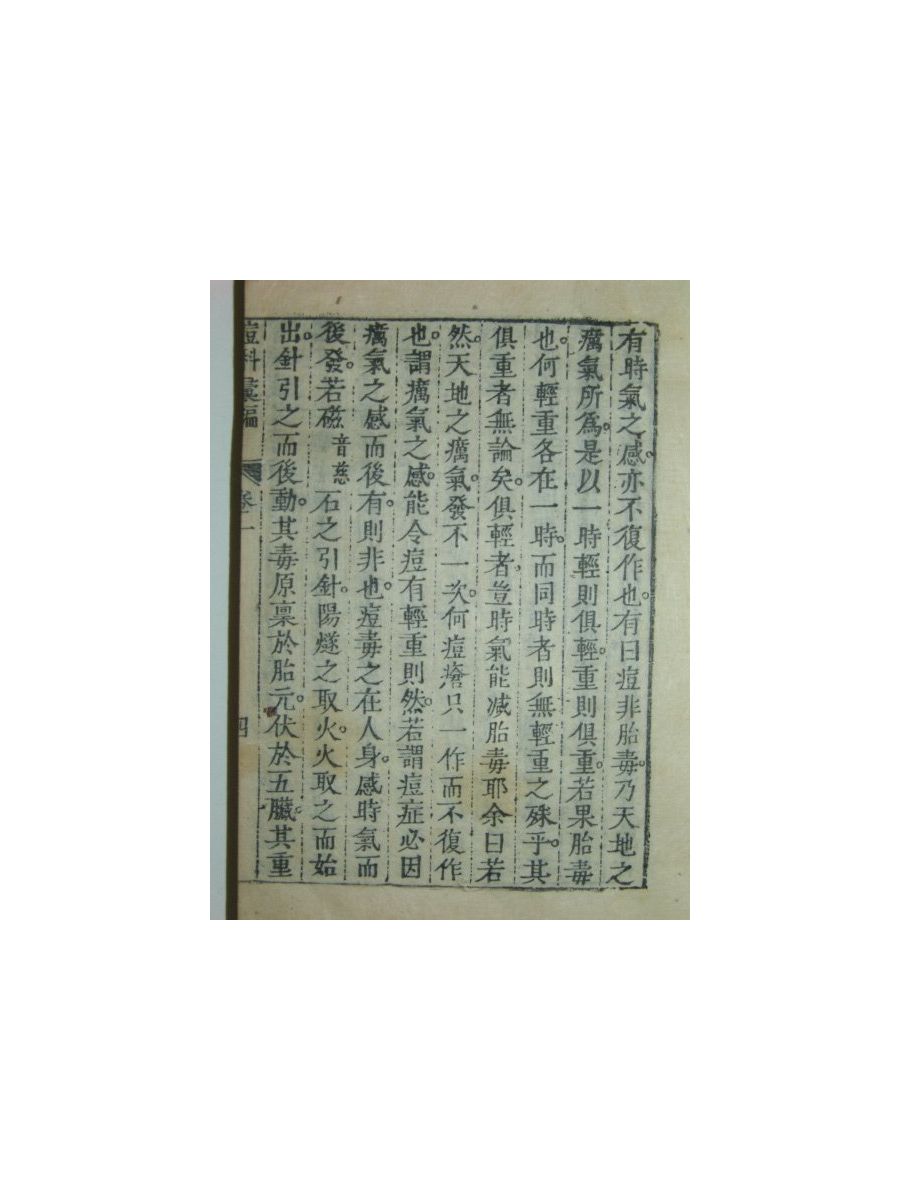 有時氣之感。亦不復作也。有曰痘非胎毒。乃天地之
癘氣所爲。是以一時輕則俱輕。重則俱重。若果胎毒
也。何輕重各在一時。而同時者則無輕重之殊乎。其
俱重者無論矣。俱輕者。豈時氣能减胎毒耶余曰若
然。天地之癘氣。發不一次。何痘瘡只一作而不復作
也。謂癘氣之感。能令痘有輕重則然。若謂痘症必因
癘氣之感而後有。則非也。痘毒之在人身。感時氣而
後發。若磁音慈石之引針。陽燧之取火。火取之而始
出。針引之而後動。其毒原禀於胎元。伏於五臟。其重
痘科彙編 卷一 四